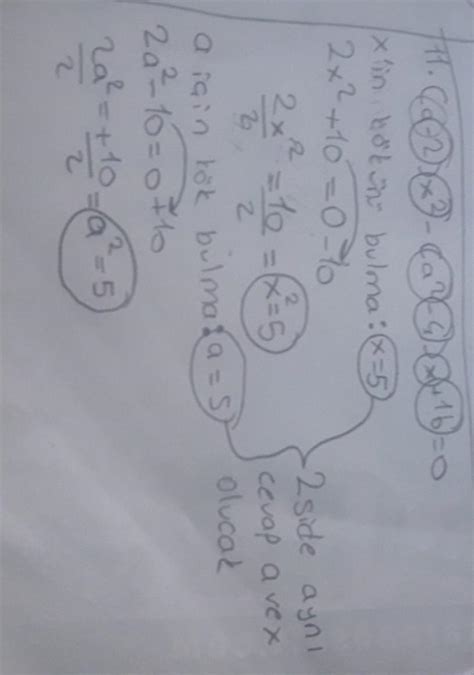 11. (a-2)x² - (a²-4)x+16=0
x'in kökünü bulma: x=5
2x²+10=0-10
2x²/2 = 10/2 = x²=5
a için kök bulma: a=5
2a²-10=0+10
2a²/2 = +10/2 = a²=5
2side aynı
cevap a ve x
olucak